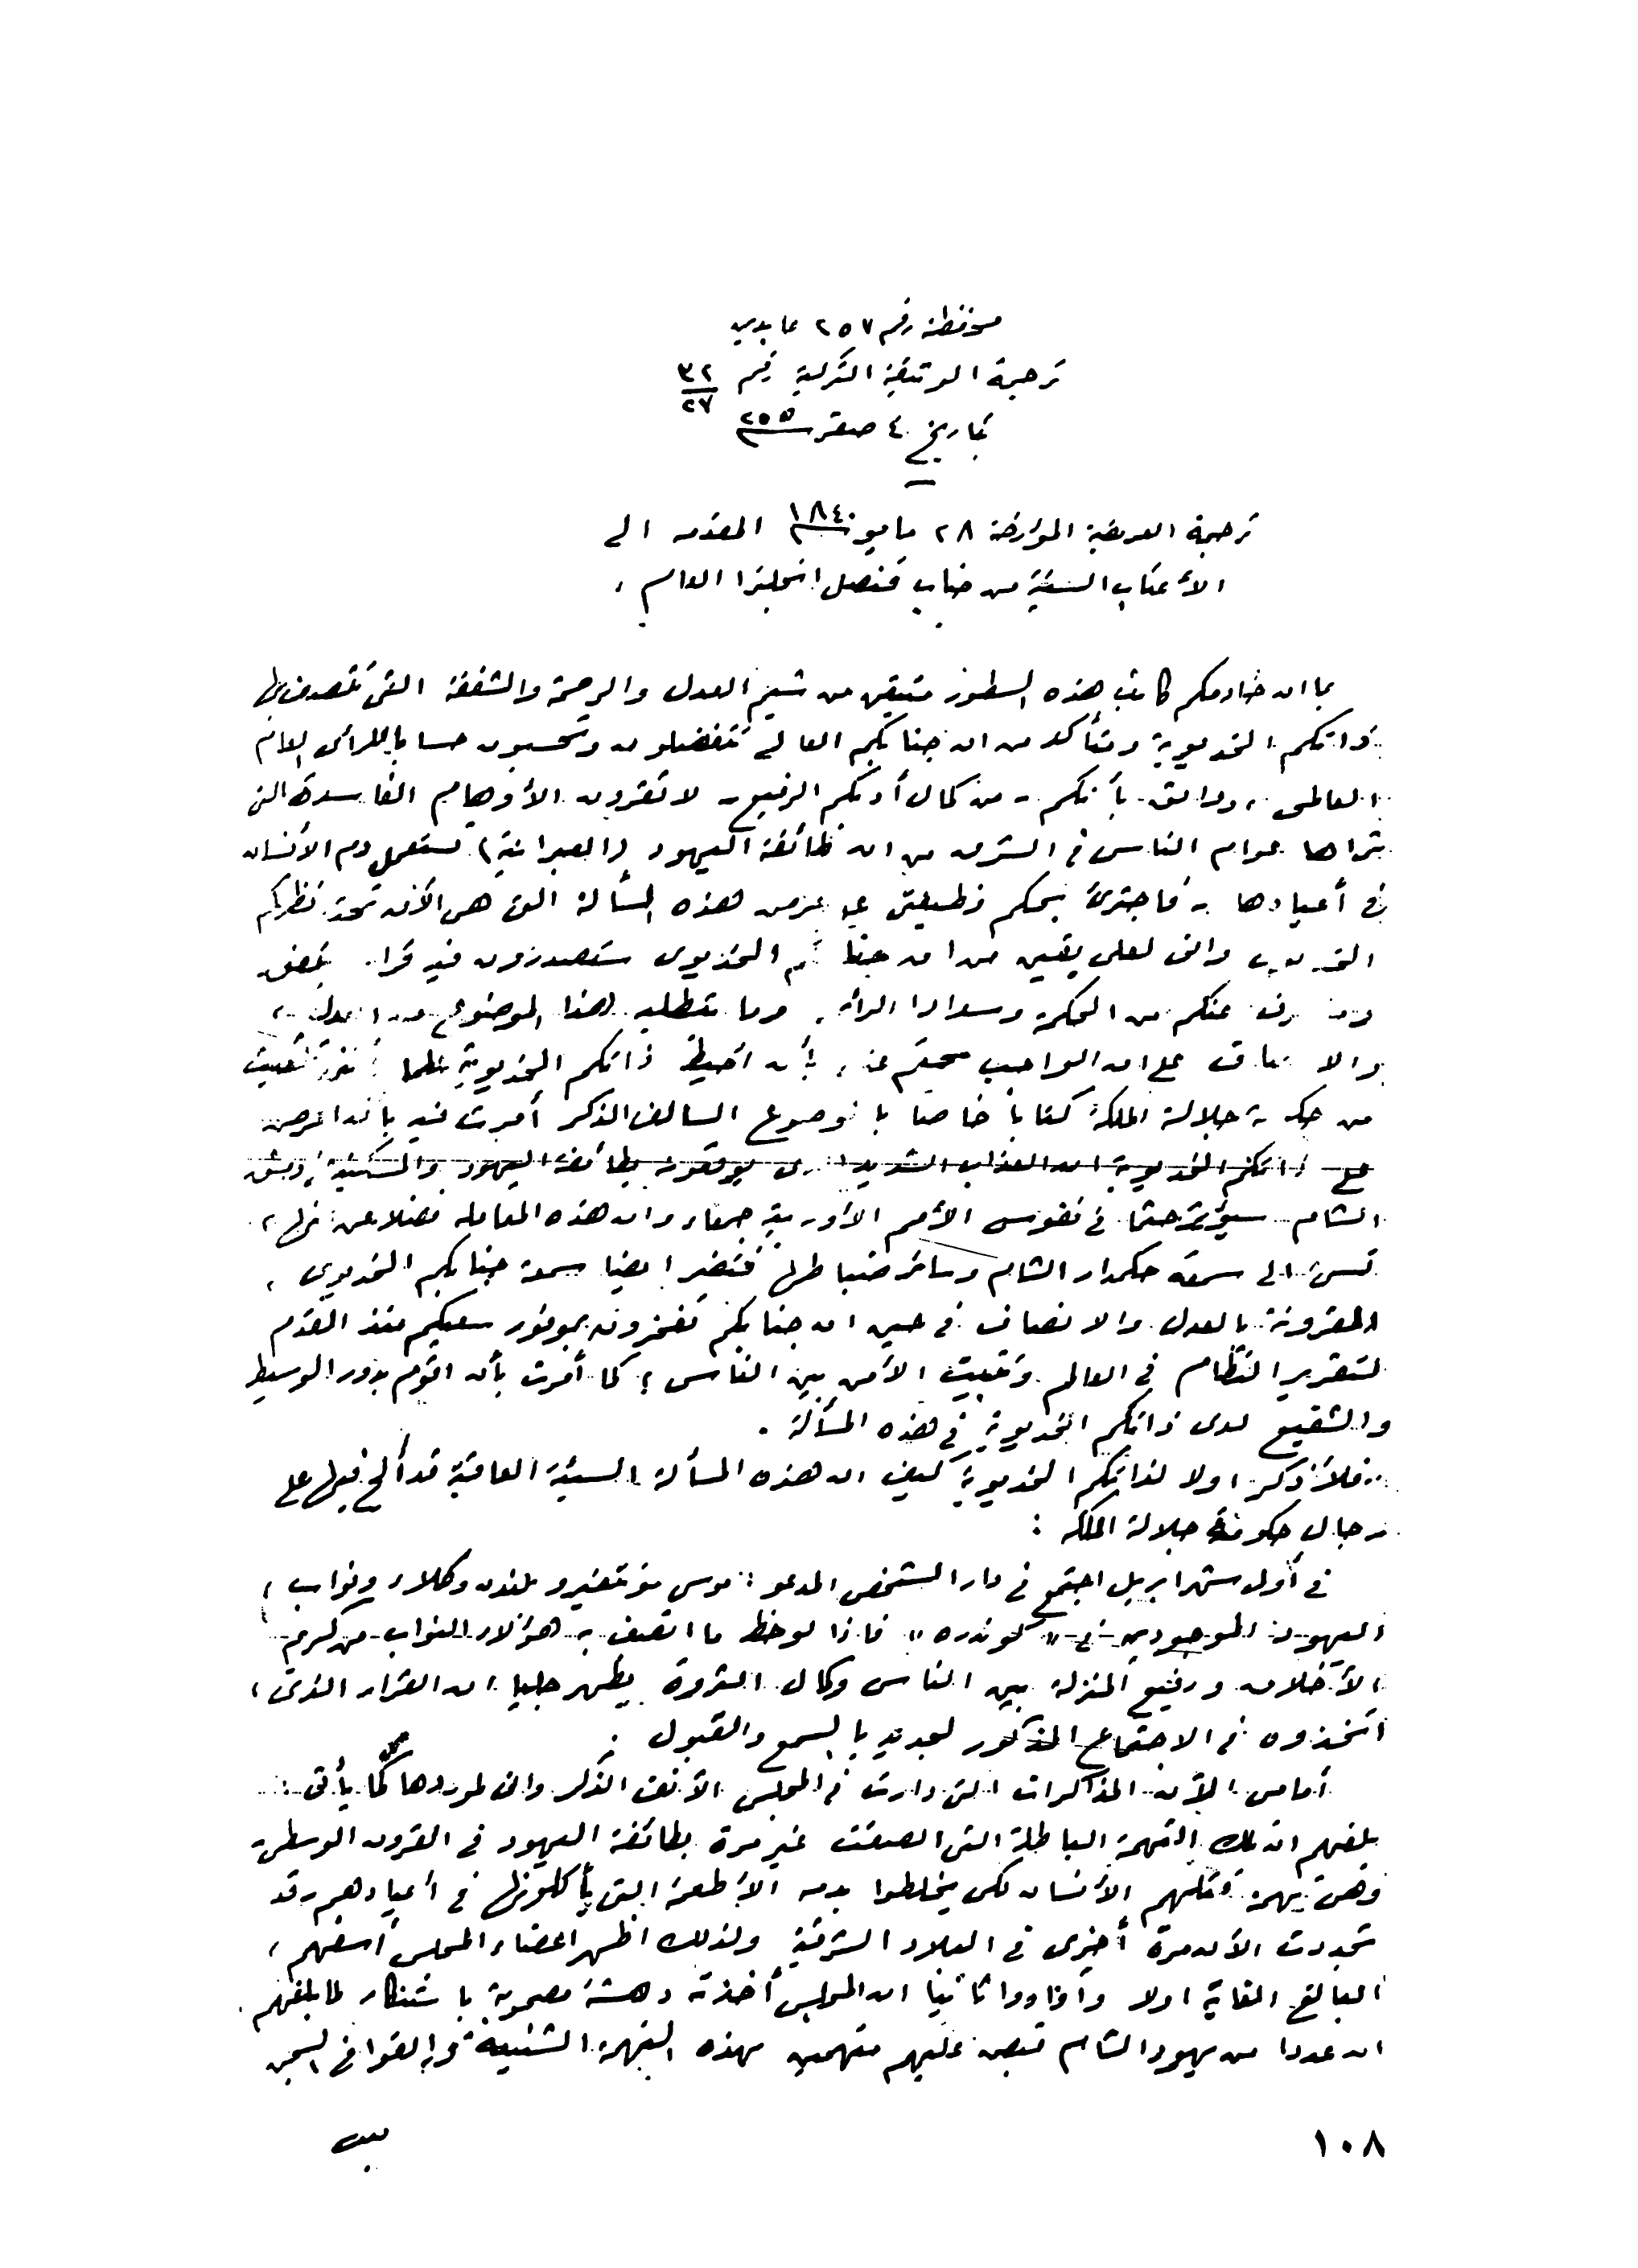 محفظة رقم ٢٥٧ عابدين
ترجمة الوثيقة التركية رقم ٣٢/٢٧
بتاريخ ٤ صفر سنة ٢٥٥
ترجمة العريضة المؤرخة ٢٨ مايو سنة ١٨٤٠ المقدمة الى
الأعتاب السنية من جناب قنصل انجلترا العام ،
بما ان خادمكم كاتب هذه السطور متيقن من شيم العدل والرحمة والشفقة التى تتصف بها
ذاتكم الخديوية ومتأكد من ان جنابكم العالى تتفضلون وتحسبون حسابا للرأى العام
العالمى ، وواثق بأنكم - من كمال أدبكم الرفيع - لا تقرون الأوهام الفاسدة التى
يراها عوام الناس فى الشرق من ان طائفة اليهود (العبرانية) تستعمل دم الأنسان
فى أعيادها - فأجترئ بحكم وظيفتى على عرض هذه المسألة التى هى الآن تحت نظركم
الخديوى وانى لعلى يقين من ان جنابكم الخديوى ستصدرون فيه قرارا يتفق
وما عرف عنكم من الحكمة وسداد الرأى وما يتطلبه هذا الموضوع من العدل
والانصاف على ان الواجب يحتم على بأن احيط ذاتكم الخديوية علما
من حكومة جلالة الملكة كتابا خاصا بالموضوع السالف الذكر أمرت فيه بأن اعرض
على ذاتكم الخديوية ان العذاب الشديد الذى يوقعونه بطائفة اليهود والمسكينة بدمشق
الشام سيؤثر حتما فى نفوس الأمم الأوربية جمعاء وان هذه المعاملة فضلا عن انها
تسئ الى سمعة حكمدار الشام وسائر ضباطها فتضير ايضا سمعة جنابكم الخديوى ،
المقرونة بالعدل والانصاف فى حين ان جنابكم تفخرون بموفور سعيكم منذ القدم
لتقرير النظام فى العالم وتثبيت الأمن بين الناس ؛ كما أمرت بأن اقوم بدور الوسيط
والشفيع لدى ذاتكم الخديوية فى هذه المسألة .
فلأذكر اولا لذاتكم الخديوية كيف ان هذه المسألة السيئة العاقبة قد ألح فيها على
رجال حكومة جلالة الملكة :
فى أول شهر ابريل اجتمع فى دار الشخص المدعو : موسى مونتفيرو بلندن وكلاء ونواب ،
اليهود الموجودين فى « لوندره » فاذا لوحظ ما اتصف به هؤلاء النواب من كرم
الأخلاق ورفيع المنزلة بين الناس وكمال الثروة يظهر جليا ان القرار الذى ،
اتخذوه فى الاجتماع المذكور لجدير بالسمع والقبول .
أمامى الآن المذاكرات التى دارت فى المجلس الآنف الذكر وانى لموردها كما يأتى :
بلغهم ان تلك التهمة الباطلة التى الصقت غير مرة بطائفة اليهود فى القرون الوسطى -
وهى تهمة قتلهم الأنسان لكى يخلطوا بدمه الأطعمة التى يأكلونها فى أعيادهم - قد
تجددت الآن مرة أخرى فى البلاد الشرقية ولذلك اظهر اعضاء المجلس أسفهم ،
البالغ الغاية اولا وأفادوا ثانيا ان المجلس أخذته دهشة مصحوبة باستنكار لما بلغهم
ان عددا من يهود الشام قبض عليهم متهمين بهذه التهمة الشنيعة وألقوا فى السجن
١٠٨